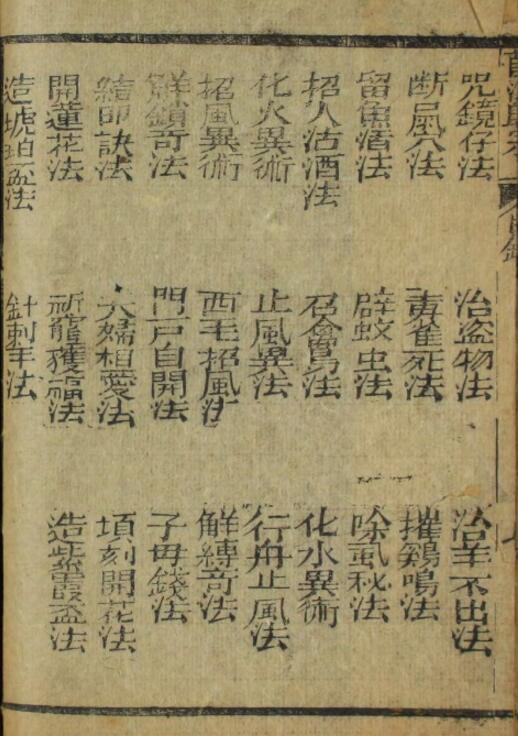 咒鏡仔法 治盗物法 治羊不出法
断風穴法 毒雀死法 摧鷄鳴法
留魚酒法 辟蚊虫法 除虱秘法
招人沽酒法 召禽鳥法 化水異術
化火異術 止風異法 行舟止風法
招風異術 西毛招風法 解縛奇法
解鎖奇法 門戸自開法 子母錢法
結印訣法 夫婦相愛法 頃刻開花法
開蓮花法 祈龍獲福法 造紫霞盃法
造琥珀盃法 法